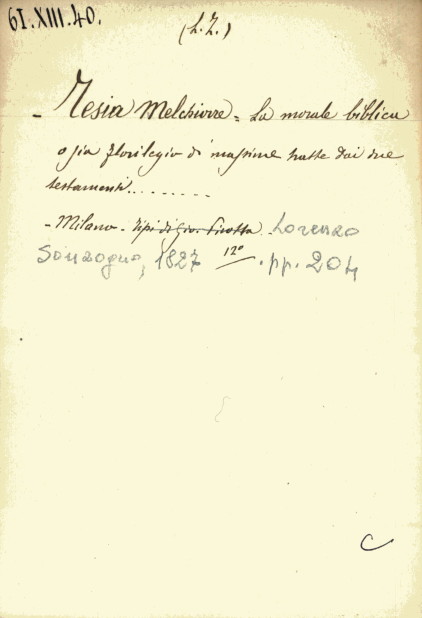 61.XIII.40.
(L.Z.)
- Mesia Melchiorre = La morale biblica
o sia florilegio di massime tratte dai due
testamenti.........
- Milano - tipi di Gio. Pirotta - Lorenzo
Sonzogno, 1827 12º . pp. 204
C